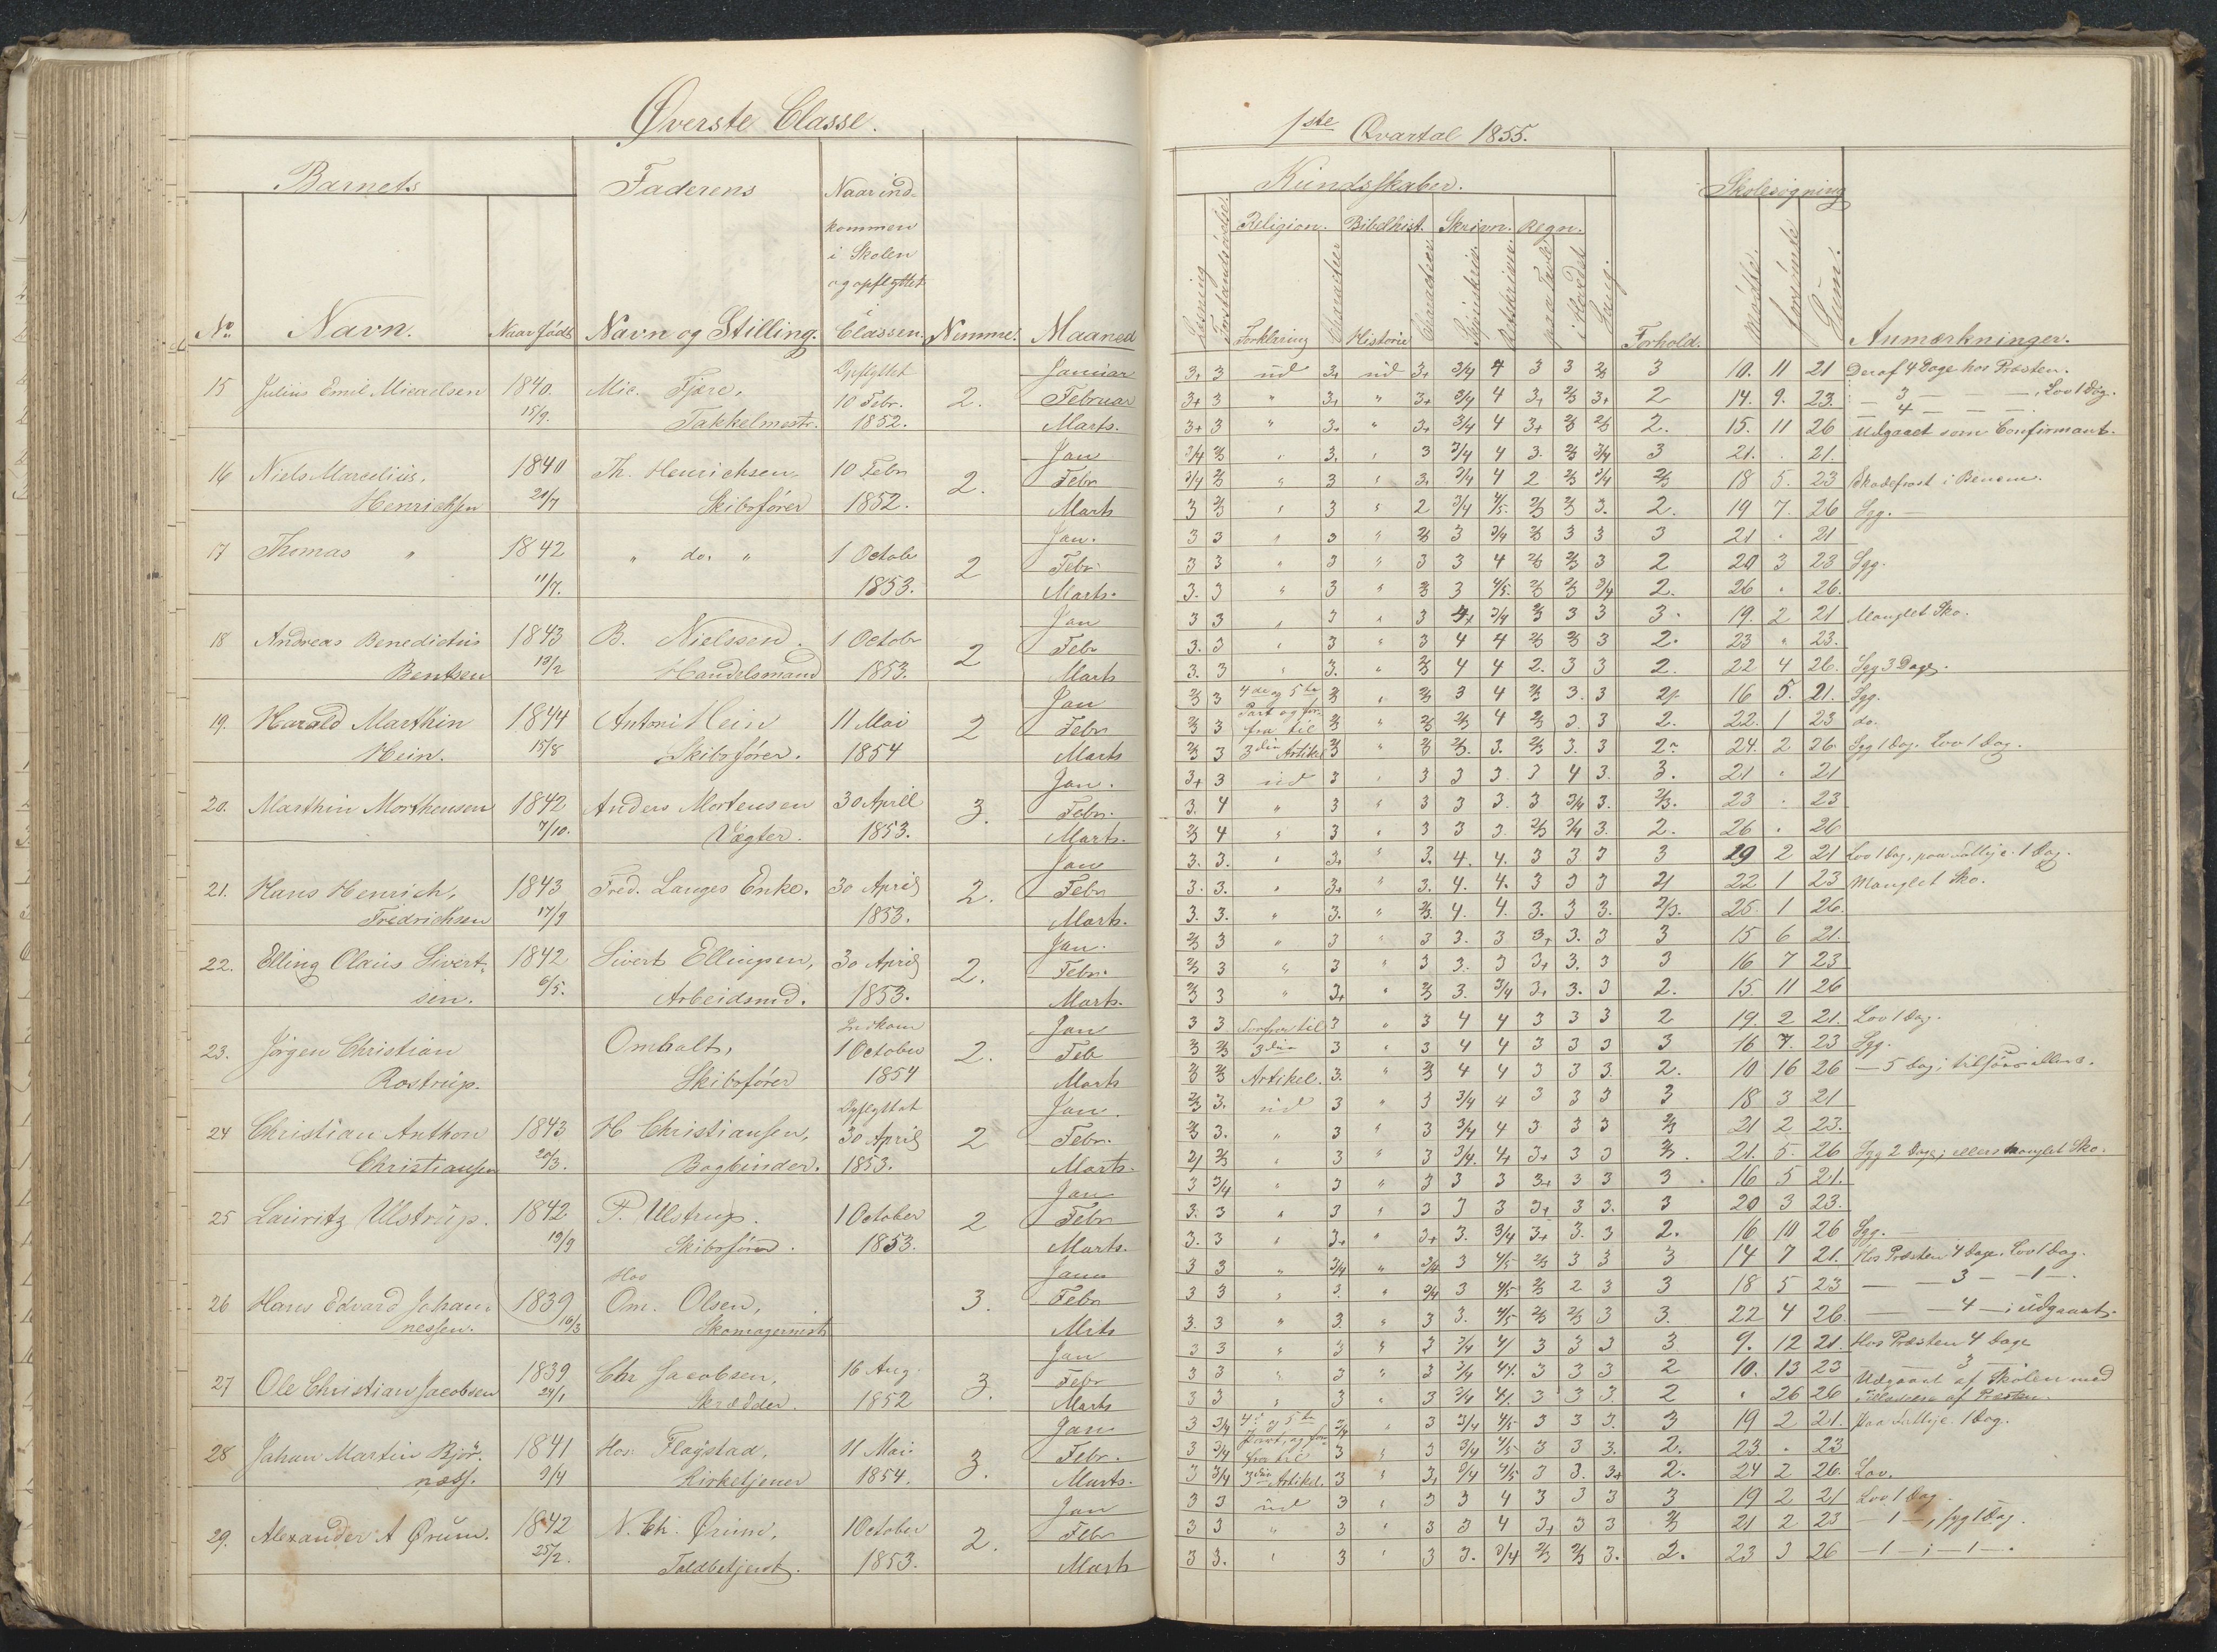 Øverste Classe.
Barnets
Faderens
Naar ind-
kommen
i Skolen
og opflyttet
i
No Navn. Naar født Navn og Stilling. Classen. Nemme. Maaned
15 Julius Emil Micaelsen 1840. 15/9. Mic. Fjære, Takkelmestr. Opflyttet 10 Febr. 1852. 2. Januar
Februar
Marts.
16 Niels Marcelius, Henrichsen 1840 21/7 Th. Henrichsen Skibsfører 10 Febr 1852. 2. Jan
Febr
Marts
17 Thomas " 1842 11/7. " do. " 1 Octobr 1853. 2 Jan.
Febr.
Marts.
18 Andreas Benedictus Bentsen 1843 13/2 B. Nielssen. Handelsmand 1 Octobr 1853. 2 Jan
Febr
Marts
19. Harald Marthin Hein. 1844 15/8 Antoni Hein Skibsfører. 11 Mai 1854 2 Jan
Febr
Marts
20. Marthin Morthensen 1842 7/10. Anders Mortensen Vægter. 30 April 1853. 3. Jan.
Febr.
Marts.
21. Hans Henrich, Fredrichsen 1843 17/9 Fred. Langes Enke. 30 April 1853. 2. Jan
Febr
Marts.
22. Elling Claus Sivertsen. 1842 6/5. Sivert Ellingsen, Arbeidsmd. 30 April 1853. 2. Jan.
Febr.
Marts.
23. Jørgen Christian Rostrup. Omholt, Skibsfører Indkom 1 October 1854 2. Jan
Feb
Marts
24 Christian Anthon Christiansen 1843 20/3. H Christiansen, Bogbinder. Opflyttet 30 April 1853. 2 Jan.
Febr.
Marts.
25 Lauritz Ulstrup. 1842 19/9 P. Ulstrup. Skibsfører. 1 October 1853. 2 Jan
Febr
Marts.
26 Hans Edvard Johannessen. 1839 16/3 Hos Om. Olsen, Skomagermestr 3. Janu
Febr
Mrts
27 Ole Christian Jacobsen 1839 24/1 Chr Jacobsen, Skrædder. 16 Aug. 1852 3. Jan
Febr
Marts
28 Johan Martin Bjørnæss. 1841 9/4 Hos: Flagstad, Kirketjener 11 Mai 1854. 3. Jan
Febr.
Marts.
29. Alexander A Ørum. 1842 25/2. N. Ch. Ørum, Toldbetjent. 1 October 1853. 2. Jan
Febr
Marts
1ste Qvartal 1855.
Kundskaber. Skolesøgning
Religion. Bibelhist. Skrivn. Regn.
Læsning Forstandsøvelse. Forklaring Character Historie Character paa Tavle i Hovdet Sang. Forhold. Mødte. forsømte Sum. Anmærkninger.
3+ 3 ud 3+ ud 3+ 3/4 4 3 3 2/3 3 10. 11 21 Deraf 4 Dage hos Præsten.
3+ 3 " 3+ " 3+ 3/4 4 3+ 2/3 3+ 2 14. 9. 23. — 3 — — —, Lov 1 Dag.
3+ 3 " 3+ " 3+ 3/4 4 3+ 2/3 2/3 2. 15. 11 26 — 4 — — — Udgaaet som Confirmant.
3/4 2/3 " 3. " 3 3/4 4 3. 2/3 3/4 3 21. . 21.
3/4 2/3 " 3 " 3+ 3/4 4 2 2/3 3/4 2/3 18 5. 23 Skadefrost i Benene.
3 2/3 " 3 " 2 3/4 4/5. 2/3 2/3 3. 2. 19 7. 26 Syg. —
3 3 " 3 " 2/3 3 3/4 2/3 3 3 3 21 . 21
3 3 " 3 " 3 3 4 2/3 2/3 3 2 20 3 23 Syg.
3. 3 " 3 " 2/3 3 4/5. 2/3 2/3 3/4 2. 26 . 26.
3 3 " 3 " 3 4+ 3/4 2/3 3 3 3. 19. 2 21 Manglet Sko.
3. 3 " 3 " 3 4 4 2/3 2/3 3 2. 23 " 23.
3. 3 " 3. " 2/3 4 4 2. 3 3 2. 22 4 26. Syg 3 Dage.
2/3 3 4de og 5te 2/3 " 2/3 3 4 2/3 3. 3 2/. 16 5. 21. Syg.
2/3 3 Part og for- fra til 2/3 " 2/3 2/3 4 2/3 3 3 2. 22. 1 23 do.
2/3 3 3die Artikel 2/3 " 2/3 2/3. 3. 2/3 3. 3 2. 24. 2 26 Syg 1 Dag. Lov 1 Dag.
3+ 3 ud 3 " 3 3 3. 3 4 3. 3. 21 . 21
3. 4 " 3 " 3 3 3. 3 3/4 3. 2/3. 23 . 23
2/3 4 " 3 " 3 3 3. 2/3 3/4 3. 2. 26 . 26
3. 3. " 3+ " 3. 4. 4. 3 3 3 3 19 2 21 Lov 1 Dag, paa Tallje. 1 Dag.
3. 3. " 3+ " 3. 4. 4. 3 3 3 2/ 22 1 23 Manglet Sko.
3. 3. " 3. " 2/3. 4. 4. 3. 3 3. 2/3. 25. 1 26.
2/3 3 " 3 " 3 3. 3 3+ 3. 3 3 15 6 21.
2/3 3 " 3 " 3 3. 3 3+ 3. 3 3 16 7 23
2/3 3 " 3+ " 2/3 3. 3/4 3+ 3. 3 2. 15. 11 26
3 3 Forfra til 3 " 3 4 4 3 3 3 2 19. 2 21. Lov 1 Dag.
2/3 2/3 3die 3 " 3 4 4 3 3 3 3 16 7. 23 Syg.
2/3 2/3 Artikel. 3. " 2/3 4 4 3 3 3. 2. 10 16 26 — 5 Dag;
2/3 3. ud 3 " 3 3/4 4 3 3 3 3 18 3 21
2/3 3. " 3 " 3 3/4 4 3 3 3 2/3 21 2 23.
2/ 2/3 " 3 " 3 3/4. 4+ 3+ 3 3 2/3. 21. 5. 26 Syg 2 Dage; ellers manglet Sko.
3 3/4 " 3 " 3 3 3 3+ 3 3 3 16 5 21.
3. 3 " 3 " 3 3 3 3+ 3 3. 3 20 3 23.
3. 3 " 3+ " 3+ 3. 3/4 3+ 3. 3 2. 16 10 26 Syg. —
3 3 " 3/4 " 3/4 3 4/5 2/3 3 3 3 14 7 21. Hos Præsten 4 Dage. Lov 1 Dag.
3 3 " 3. " 3/4 3 4/5 2/3 2 3 3 18 5 23 — — 3 — — 1 — .
3. 3 " 3. " 3 3. 4/5 2/3 2/3 3 3. 22 4 26. — — 4 — ; udgaaet.
3 3 " 3 " 3 3/4 4/ 3 3 3 3. 9. 12 21. Hos Præsten 4 Dage
3 3 " 3 " 3 3/4 4/. 3 3 3 2 10. 13 23 — 3 —
3 3 " 3 " 3 3/4 4/. 3 3 3. 2 . 26 26 Udgaaet af Skolen med Tilladelse af Præsten.
3 3/4 4de og 5te 3/4 " 3 3/4 4/5 3 3 3. 3 19 2 21. Paa Tallje. 1 Dag.
3 3/4 Part, og for- 3 " 3 3/4 4/5 3 3 3. 2. 23 . 23
3 3/4 fra til 3die Artikel. 3 " 3+ 3/4 4/5 3 3. 3+ 2. 24 2 26. Lov.
3 3 ud 3 " 3 3 4 3 3 3 3 19 2 21 Lov 1 Dag.
3 3 " 3 " 3 3 4 3+ 3 3 2/3 21 2 23 — 1 —, syg 1 Dag.
3 3. " 3 " 3 3. 3/4 2/3 2/3 3. 2. 23 3 26 — 1 — ; — 1 — .